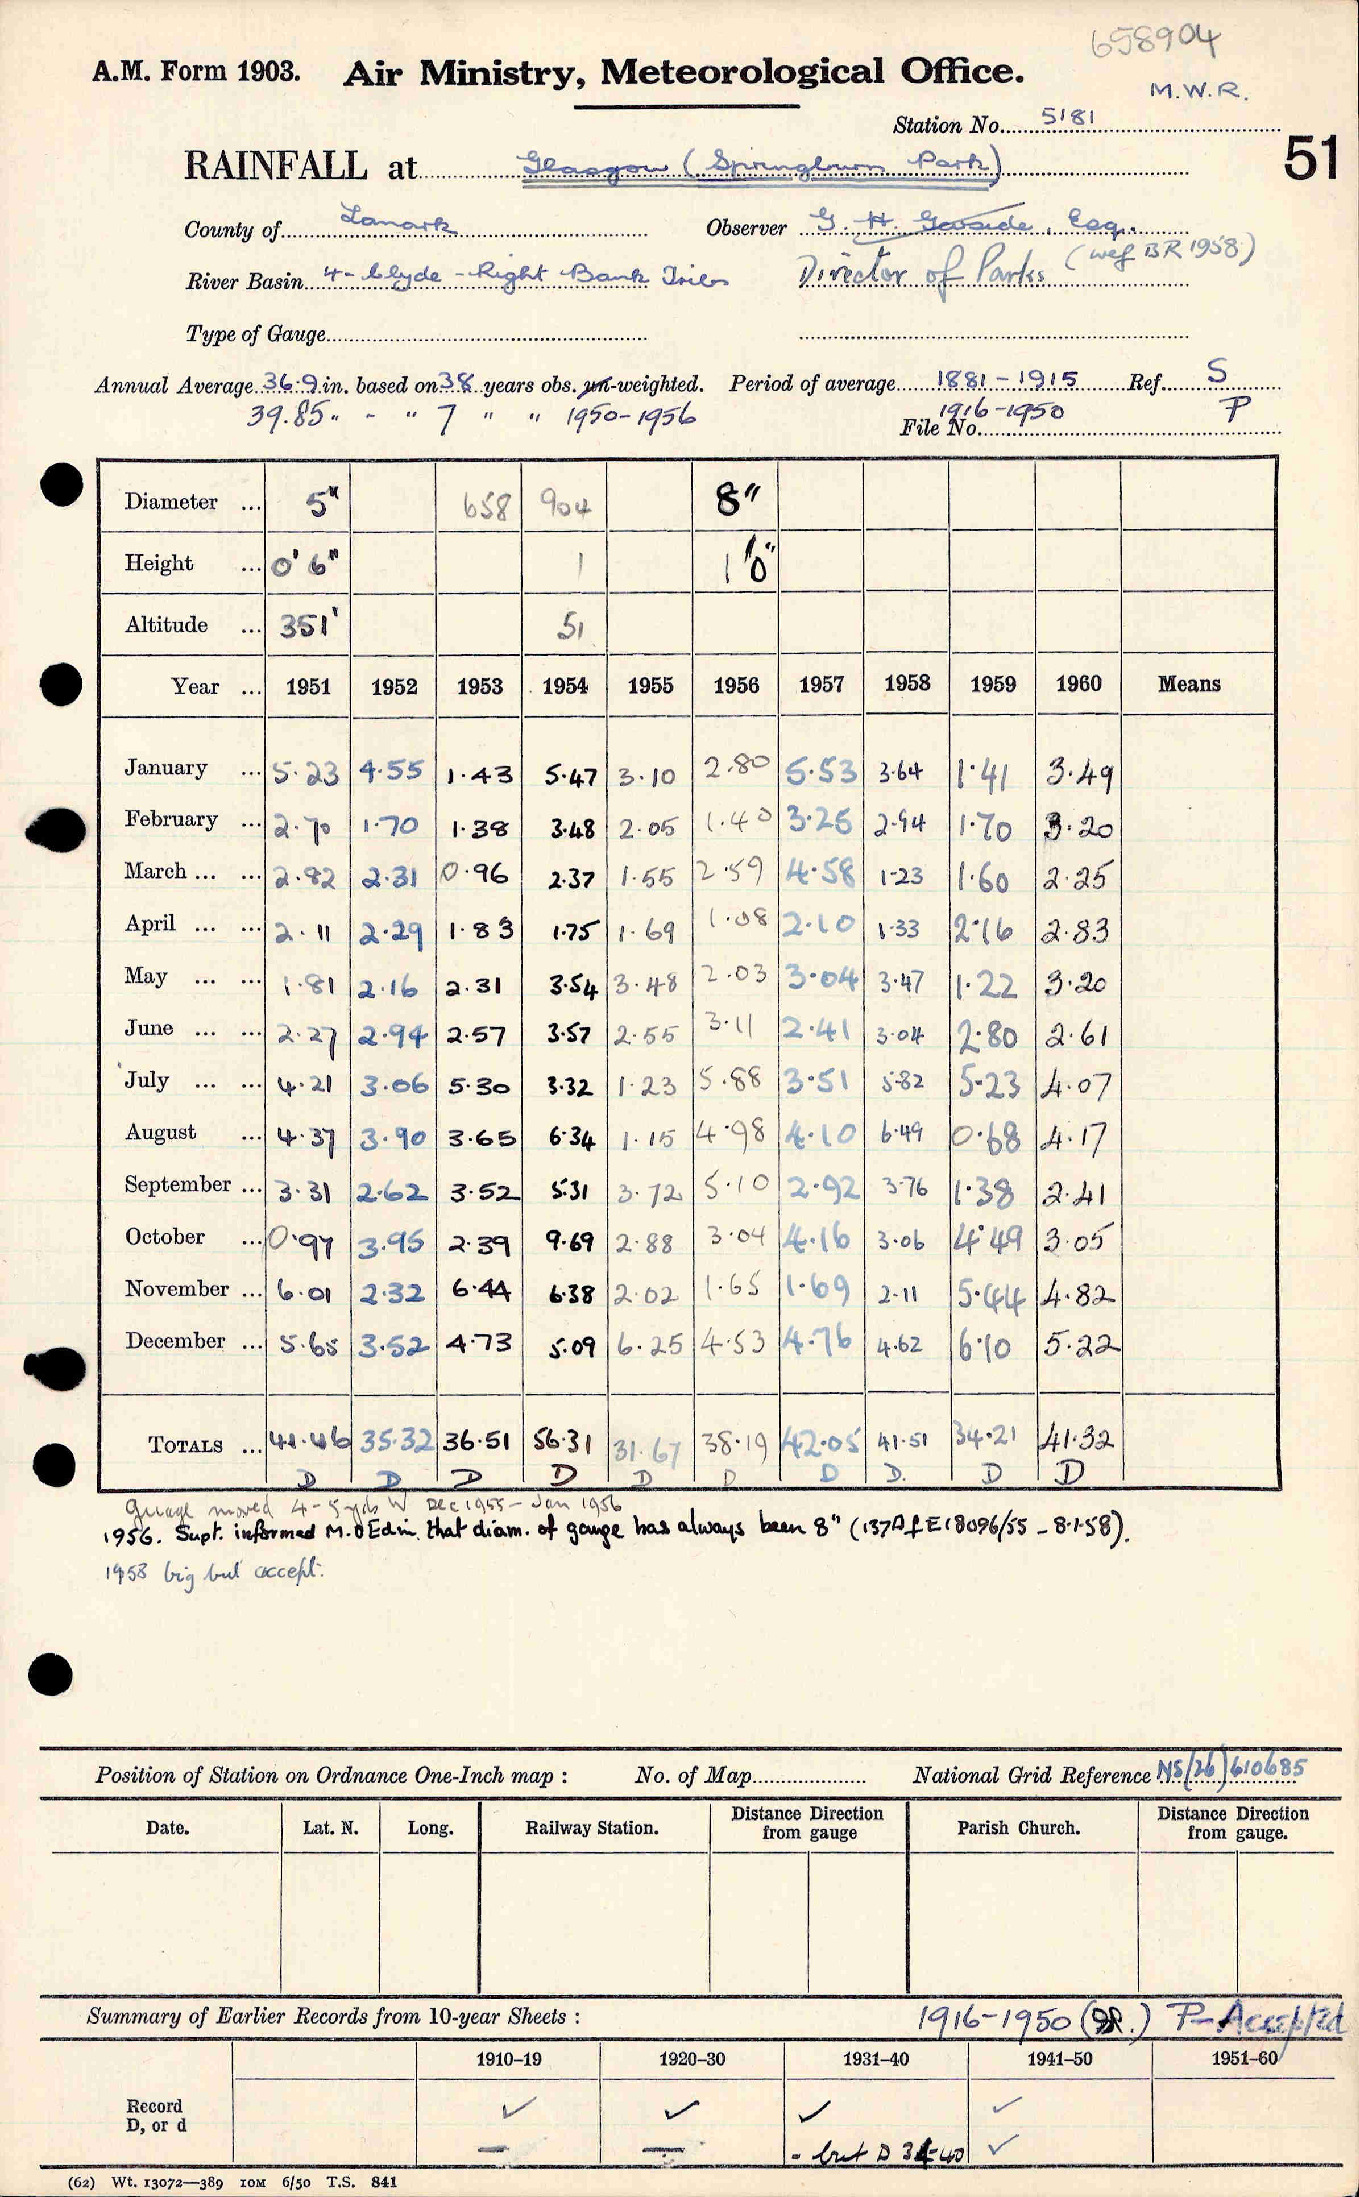 658904
A.M. Form 1903. Air Ministry, Meteorological Office.
M.W.R.
Station No. 5181
RAINFALL at Glasgow (Springburn Park)
51
County of Lanark Observer G. H. Gawside, Esq.
River Basin 4 - Clyde - Right Bank Tribs Director of Parks (wef BR 1958)
Type of Gauge
Annual Average 36.9 in. based on 38 years obs. un-weighted. Period of average 1881-1915 Ref. S
39.85 " - " 7 " " 1950-1956 1916-1950 P
File No.
Diameter ... 5" 658 904 8"
Height ... 0' 6" 1 1'0"
Altitude ... 351' 51
Year ... 1951 1952 1953 1954 1955 1956 1957 1958 1959 1960 Means
January ... 5.23 4.55 1.43 5.47 3.10 2.80 5.53 3.64 1.41 3.49
February ... 2.70 1.70 1.38 3.48 2.05 1.40 3.25 2.94 1.70 3.20
March ... ... 2.82 2.31 0.96 2.37 1.55 2.59 4.58 1.23 1.60 2.25
April ... ... 2.11 2.29 1.83 1.75 1.69 1.08 2.10 1.33 2.16 2.83
May ... ... 1.81 2.16 2.31 3.54 3.48 2.03 3.04 3.47 1.22 3.20
June ... ... 2.27 2.94 2.57 3.57 2.55 3.11 2.41 3.04 2.80 2.61
July ... ... 4.21 3.06 5.30 3.32 1.23 5.88 3.51 5.82 5.23 4.07
August ... 4.37 3.90 3.65 6.34 1.15 4.98 4.10 6.49 0.68 4.17
September ... 3.31 2.62 3.52 5.31 3.72 5.10 2.92 3.76 1.38 2.41
October ... 0.97 3.95 2.39 9.69 2.88 3.04 4.16 3.06 4.49 3.05
November ... 6.01 2.32 6.44 6.38 2.02 1.65 1.69 2.11 5.44 4.82
December ... 5.65 3.52 4.73 5.09 6.25 4.53 4.76 4.62 6.10 5.22
TOTALS ... 41.46 35.32 36.51 56.31 31.67 38.19 42.05 41.51 34.21 41.32
D D D D D D D D. D D
Guage moved 4-5 yds W Dec 1955 - Jan 1956
1956. Supt. informed M.O Edin. that diam. of gauge has always been 8" (137A f E18096/55 - 8.1.58).
1958 big but accept.
Position of Station on Ordnance One-Inch map : No. of Map National Grid Reference NS(26)610685
Date. Lat. N. Long. Railway Station. Distance Direction from gauge Parish Church. Distance Direction from gauge.
Summary of Earlier Records from 10-year Sheets : 1916-1950 P-Accepted
1910-19 1920-30 1931-40 1941-50 1951-60
Record ✓ ✓ ✓ ✓
D, or d — — - but D 34-40 ✓
(62) Wt. 13072—389 10M 6/50 T.S. 841